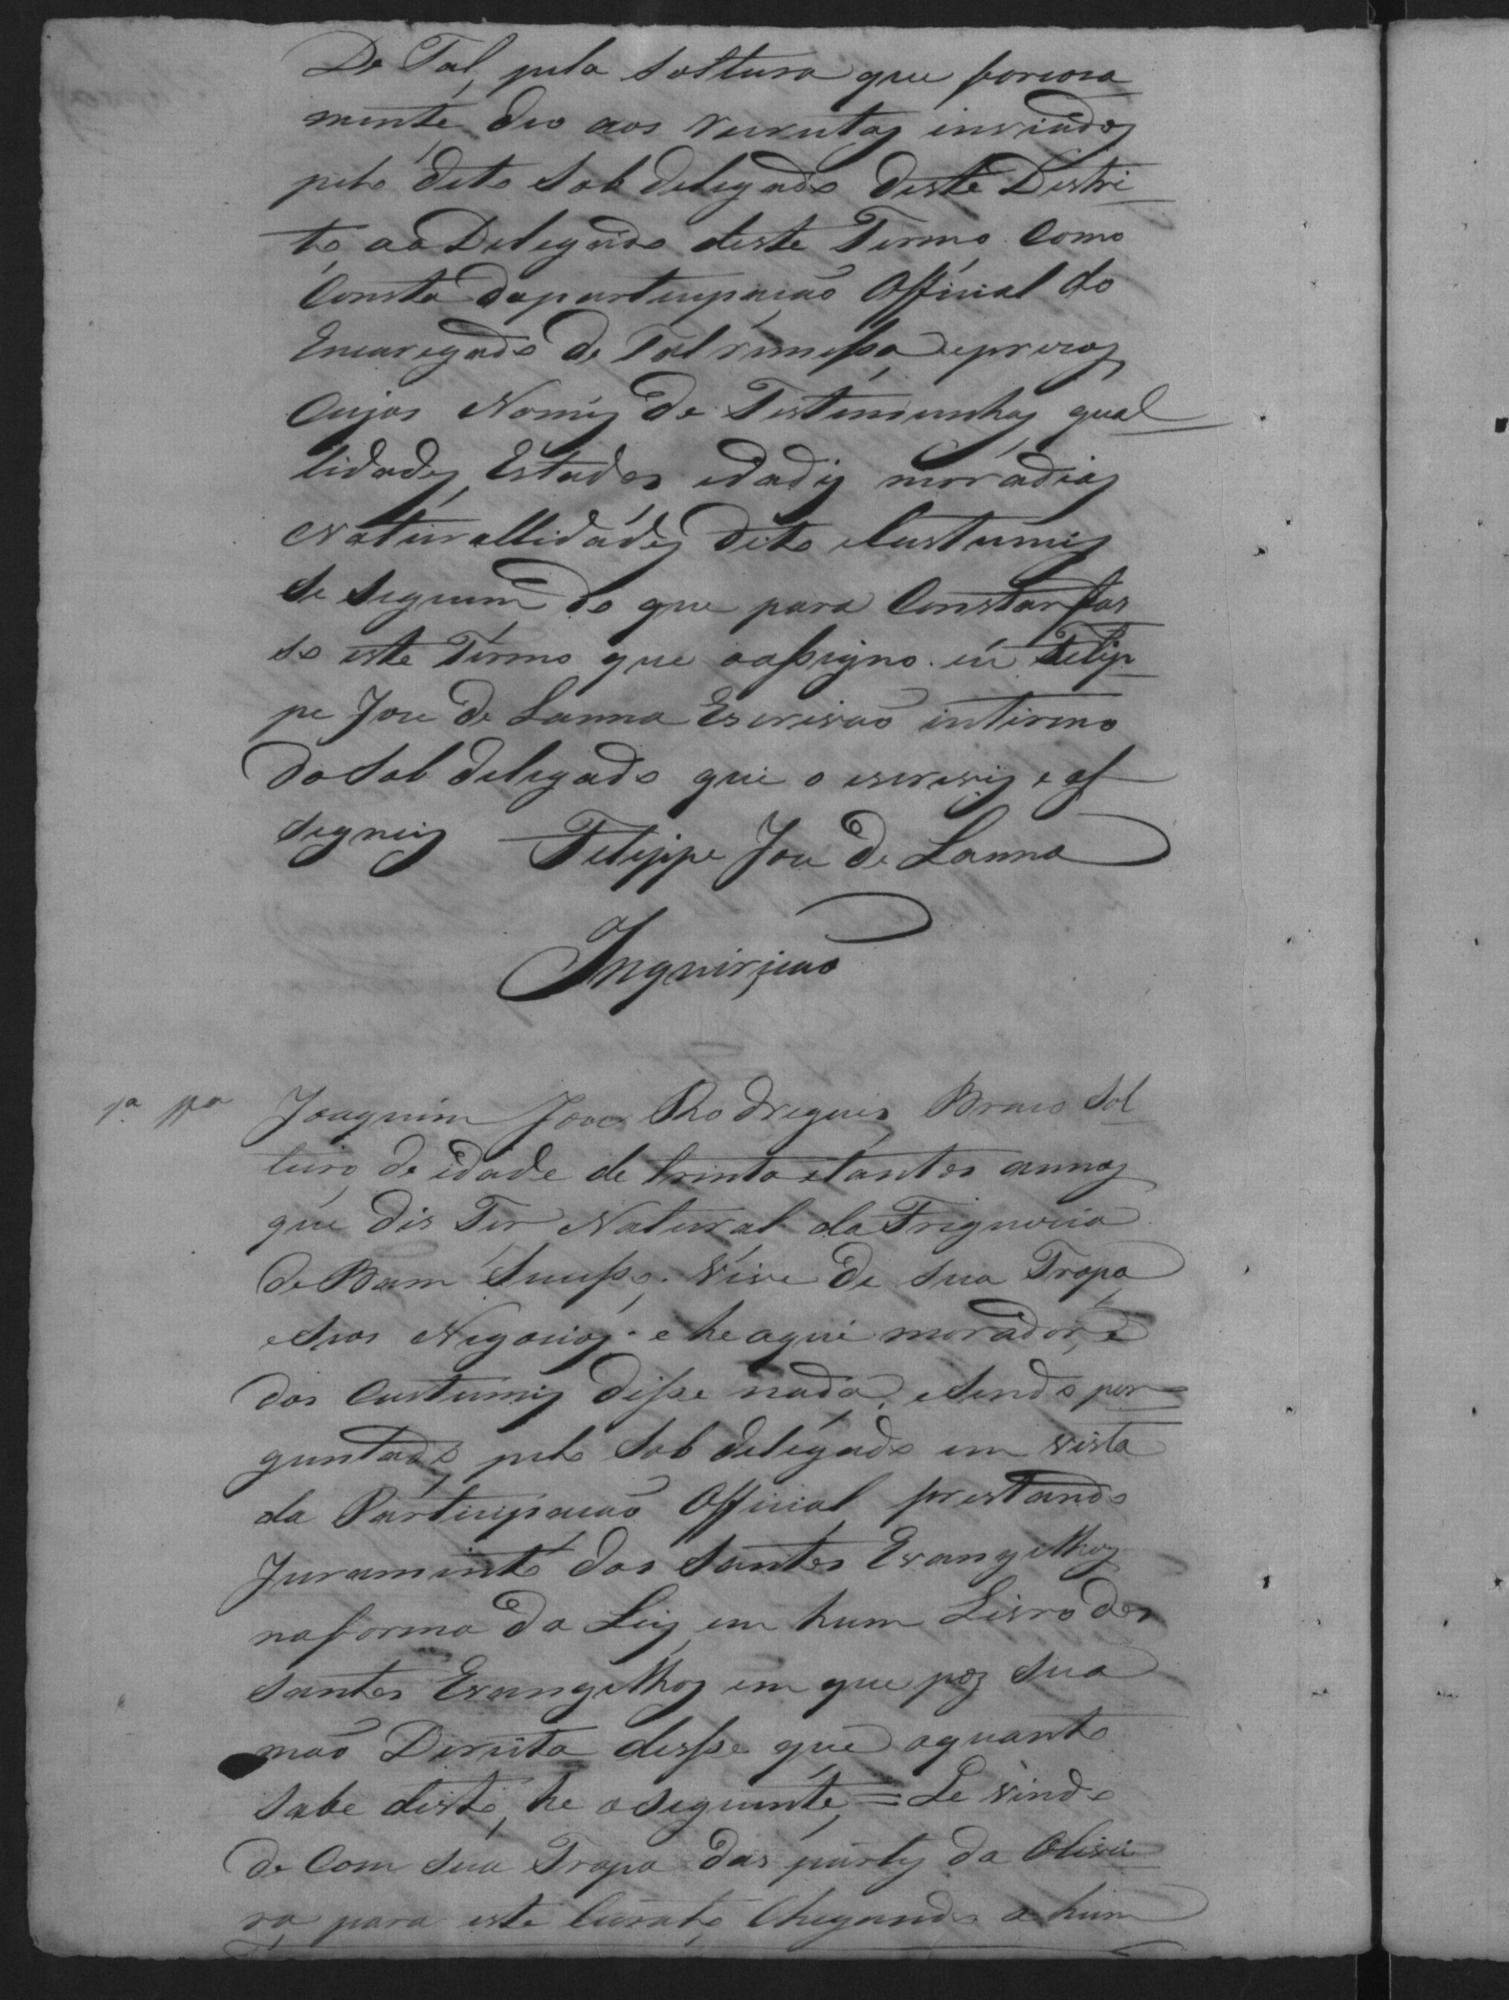 De Tal, pela Soltura que forcosa
mente deo aos recrutas inviados
pelo dito Sobdelegado deste Distri-
to ao Delegado deste Termo Como
Consta daparticipação Official do
Encaregado de Tal rémessa eprezos
Cujos Nomes de Testemunhas qual
lidades Estados idades moradias
Naturallidades dito eCustumes
Se seguem do que para Constar fas
so este Termo que oassigno. eu Felip-
pe Joze de Lanna Escrivão interino
do Sobdelegado que o escrevy e as
signey Felippe Joze de Lanna
Inquirição
1.ª Tta Joaquim Joze Rodrigues Branco Sol-
teiro, de idade de trinta etantos annos
que dis Ter Natural da Friguezia
de Bam Sucesso. Vive de sua Tropa
eSuos Negocios. e he aqui morador, e
dos Custumes disse nada, eSendo per-
guntado, pelo Sobdelegado em vista
da Participacão Official prestando
Juramento dos Santos Evangelhos
naforma da Ley em hum Livro dos
Santos Evangelhos em que poz sua
mão Direita disse que oquanto
Sabe disto, he oseguinte, = Le vindo
de Com sua Tropa das partes da Olivei-
ra, para este Curato, Chegando a hum